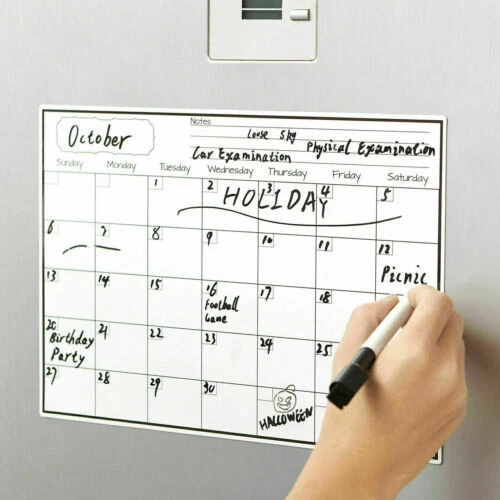 October
Notes
Loose 5kg
Physical Examination
Car Examination
Sunday Monday Tuesday Wednesday Thursday Friday Saturday
1 2 3 4 5
HOLIDAY
6 7 8 9 10 11 12
Picnic
13 14 15 16 17 18
Football
Game
20 21 22 23 24 25
Birthday
Party
27 28 29 30
HALLOWEEN